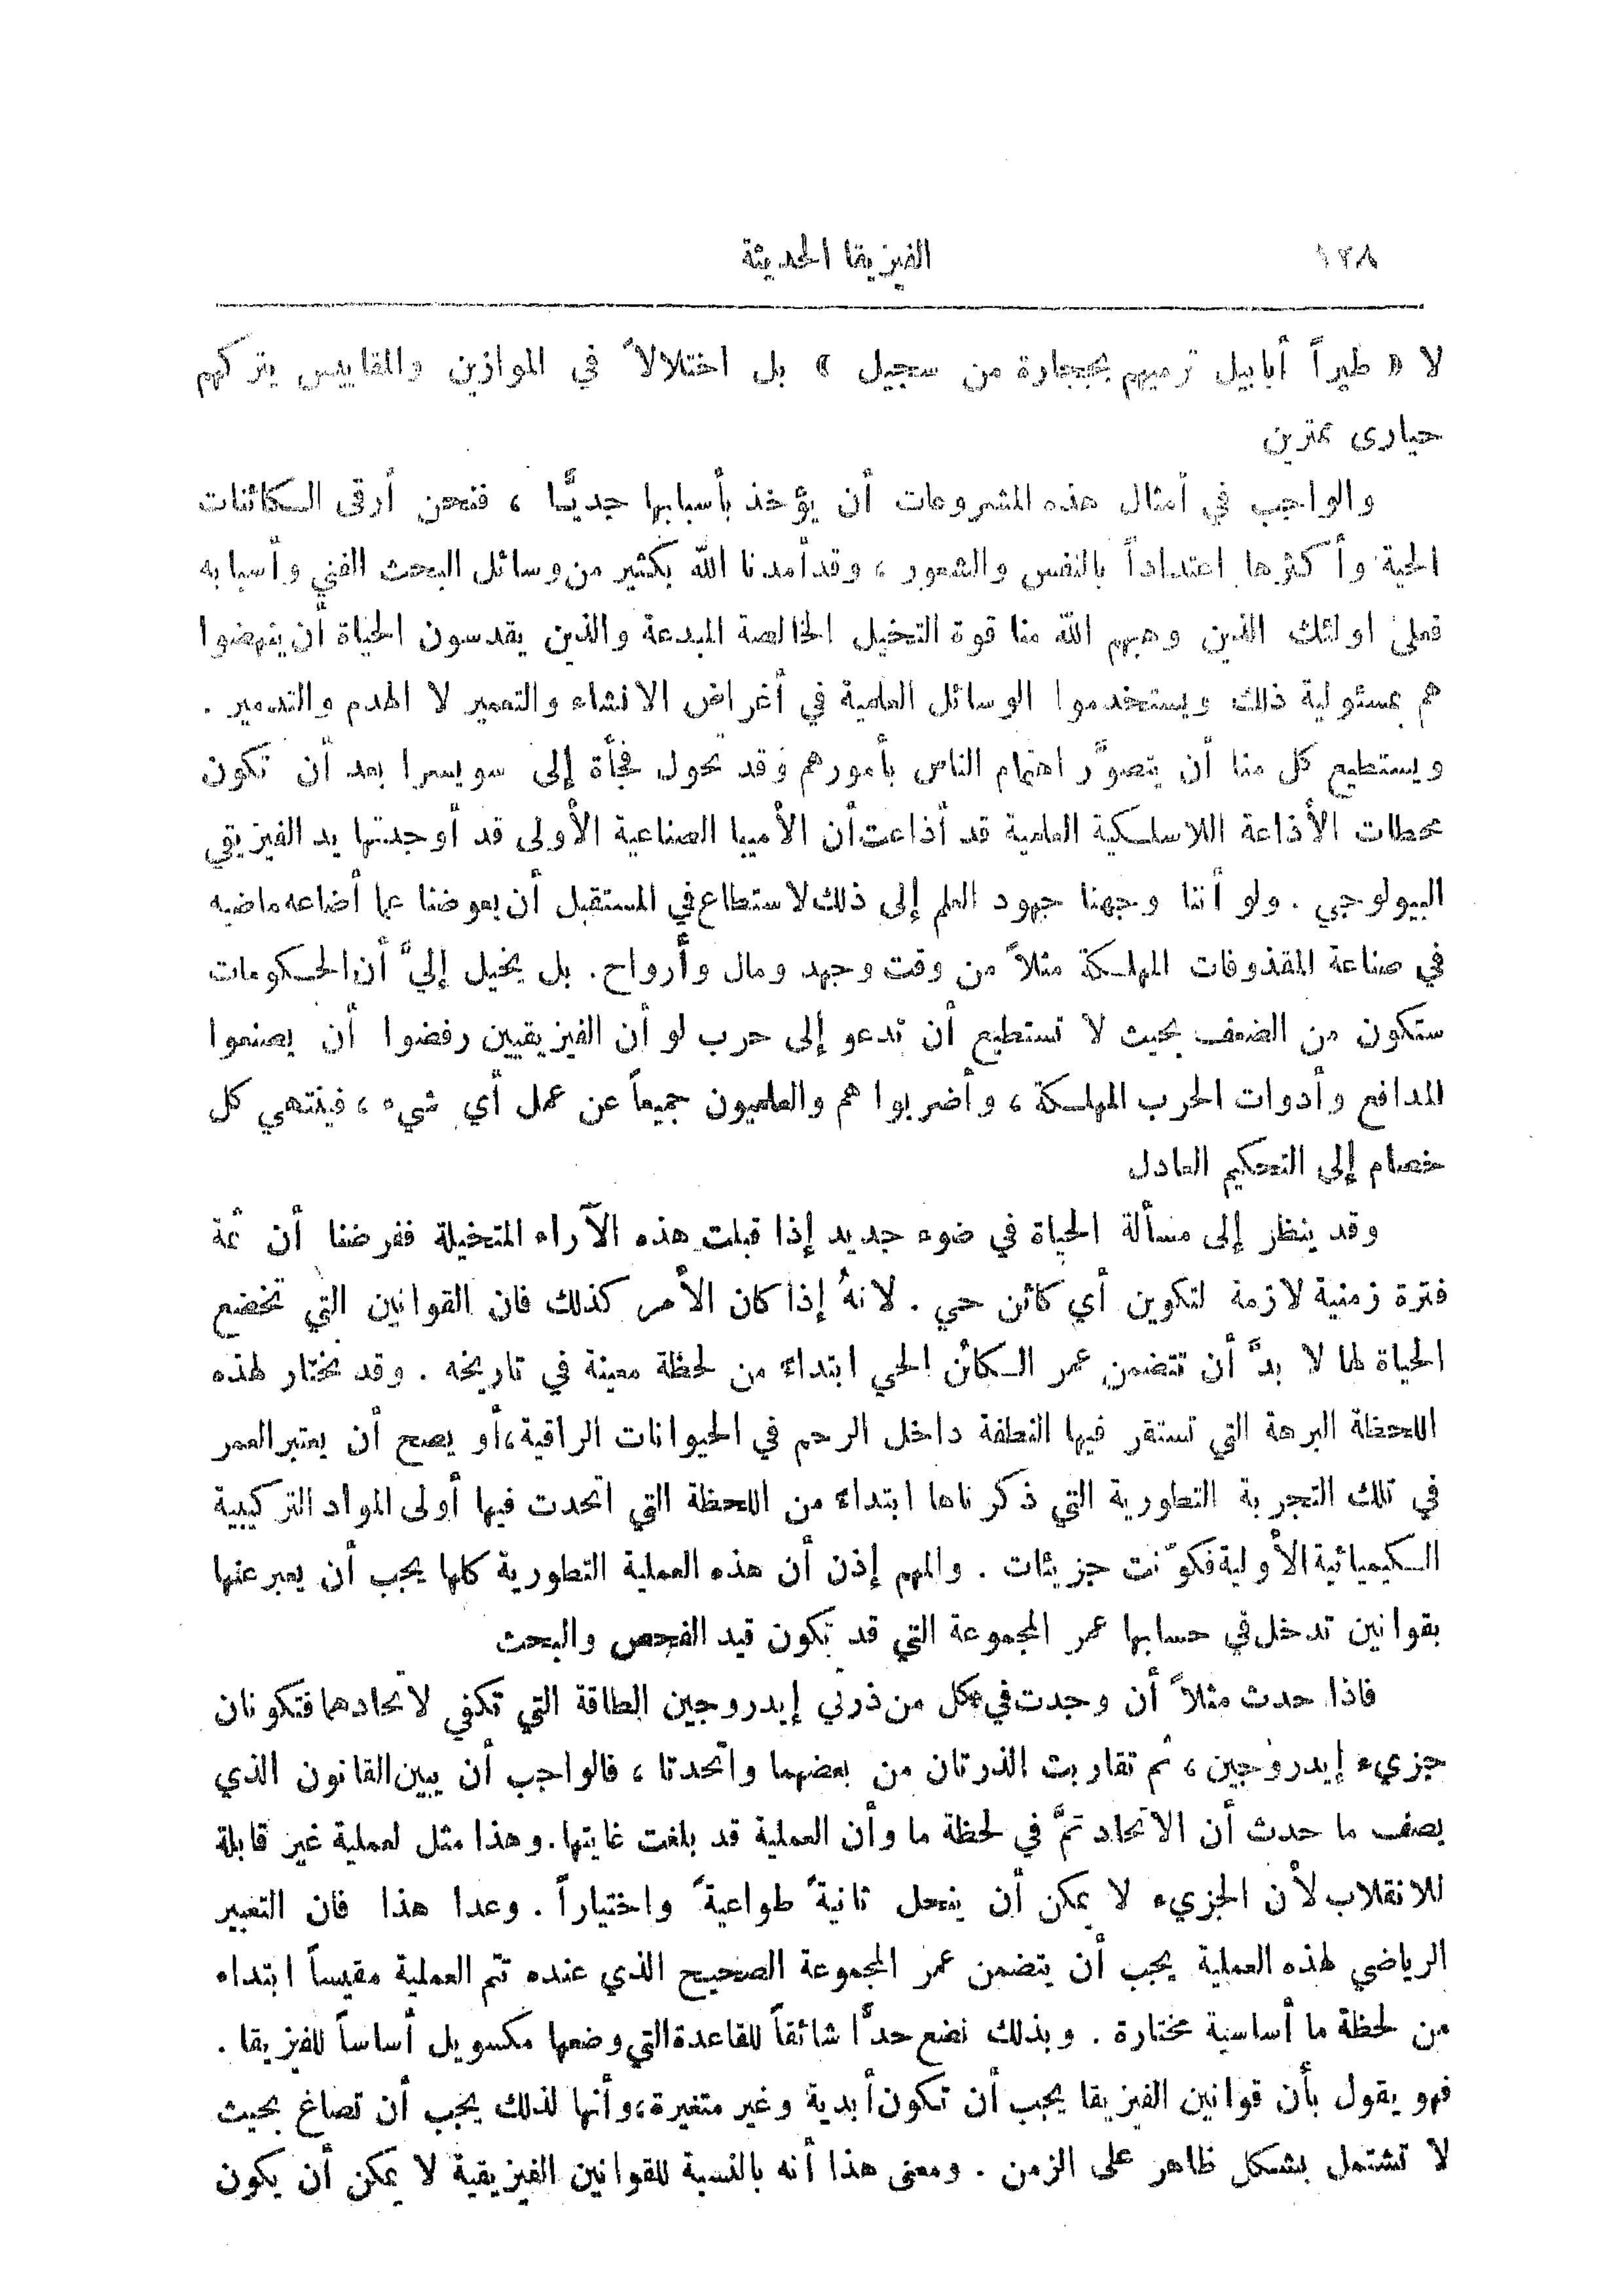 ١٢٨ الفيزيقا الحديثة
لا « طيراً أبابيل ترميهم بحجارة من سجيل » بل اختلالاً في الموازين والمقاييس يتركهم
حيارى ممترين
والواجب في أمثال هذه المشروعات أن يؤخذ بأسبابها جديًّا ، فنحن أرقى الكائنات
الحية وأكثرها اعتداداً بالنفس والشعور ، وقد أمدنا الله بكثير من وسائل البحث الفني وأسبابه
فعلى اولئك الذين وهبهم الله منا قوة التخيل الخالصة المبدعة والذين يقدسون الحياة أن ينهضوا
هم بمسئولية ذلك ويستخدموا الوسائل العلمية في أغراض الانشاء والتعمير لا الهدم والتدمير .
ويستطيع كل منا أن يتصوَّر اهتمام الناس بأمورهم وقد تحول فجأة إلى سويسرا بعد أن تكون
محطات الأذاعة اللاسلكية العلمية قد أذاعت أن الأميبا الصناعية الأولى قد أوجدتها يد الفيزيقي
البيولوجي . ولو أننا وجهنا جهود العلم إلى ذلك لاستطاع في المستقبل أن يعوضنا عما أضاعه ماضيه
في صناعة المقذوفات المهلكة مثلاً من وقت وجهد ومال وأرواح . بل يخيل إليَّ أن الحكومات
ستكون من الضعف بحيث لا تستطيع أن تدعو إلى حرب لو أن الفيزيقيين رفضوا أن يصنعوا
المدافع وأدوات الحرب المهلكة ، وأضربوا هم والعلميون جميعاً عن عمل أي شيء ، فينتهي كل
خصام إلى التحكيم العادل
وقد ينظر إلى مسألة الحياة في ضوء جديد إذا قبلت هذه الآراء المتخيلة ففرضنا أن ثمة
فترة زمنية لازمة لتكوين أي كائن حي . لانهُ إذا كان الأمر كذلك فان القوانين التي تخضع
الحياة لها لا بدَّ أن تتضمن عمر الكائن الحي ابتداءً من لحظة معينة في تاريخه . وقد نختار لهذه
اللحظة البرهة التي تستقر فيها النطفة داخل الرحم في الحيوانات الراقية ، أو يصح أن يعتبر العمر
في تلك التجربة التطورية التي ذكرناها ابتداءً من اللحظة التي اتحدت فيها أولى المواد التركيبية
الكيميائية الأولية فكوّنت جزيئات . والمهم إذن أن هذه العملية التطورية كلها يجب أن يعبر عنها
بقوانين تدخل في حسابها عمر المجموعة التي قد تكون قيد الفحص والبحث
فاذا حدث مثلاً أن وجدت في كل من ذرتي إيدروجين الطاقة التي تكفي لاتحادهما فتكونان
جزيء إيدروجين ، ثم تقاربت الذرتان من بعضهما واتحدتا ، فالواجب أن يبين القانون الذي
يصف ما حدث أن الاتحاد تمَّ في لحظة ما وأن العملية قد بلغت غايتها . وهذا مثل لعملية غير قابلة
للانقلاب لأن الجزيء لا يمكن أن ينحل ثانيةً طواعيةً واختياراً . وعدا هذا فان التعبير
الرياضي لهذه العملية يجب أن يتضمن عمر المجموعة الصحيح الذي عنده تتم العملية مقيساً ابتداء
من لحظة ما أساسية مختارة . وبذلك نضع حدًّا شائقاً للقاعدة التي وضعها مكسويل أساساً للفيزيقا .
فهو يقول بأن قوانين الفيزيقا يجب أن تكون أبدية وغير متغيرة ، وأنها لذلك يجب أن تصاغ بحيث
لا تشتمل بشكل ظاهر على الزمن . ومعنى هذا أنه بالنسبة للقوانين الفيزيقية لا يمكن أن يكون